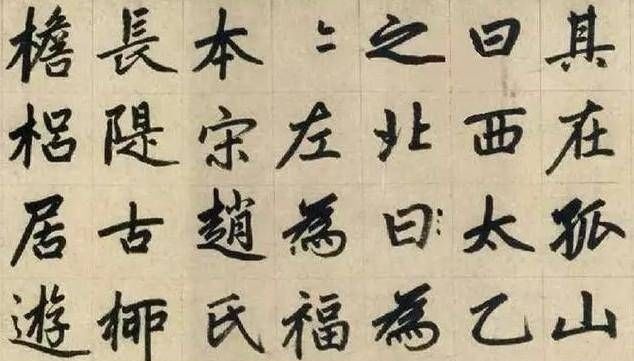 其在孤山
曰西太乙
之北曰為
〻左為福
本宋趙氏
長隄古栁
檐梠居遊